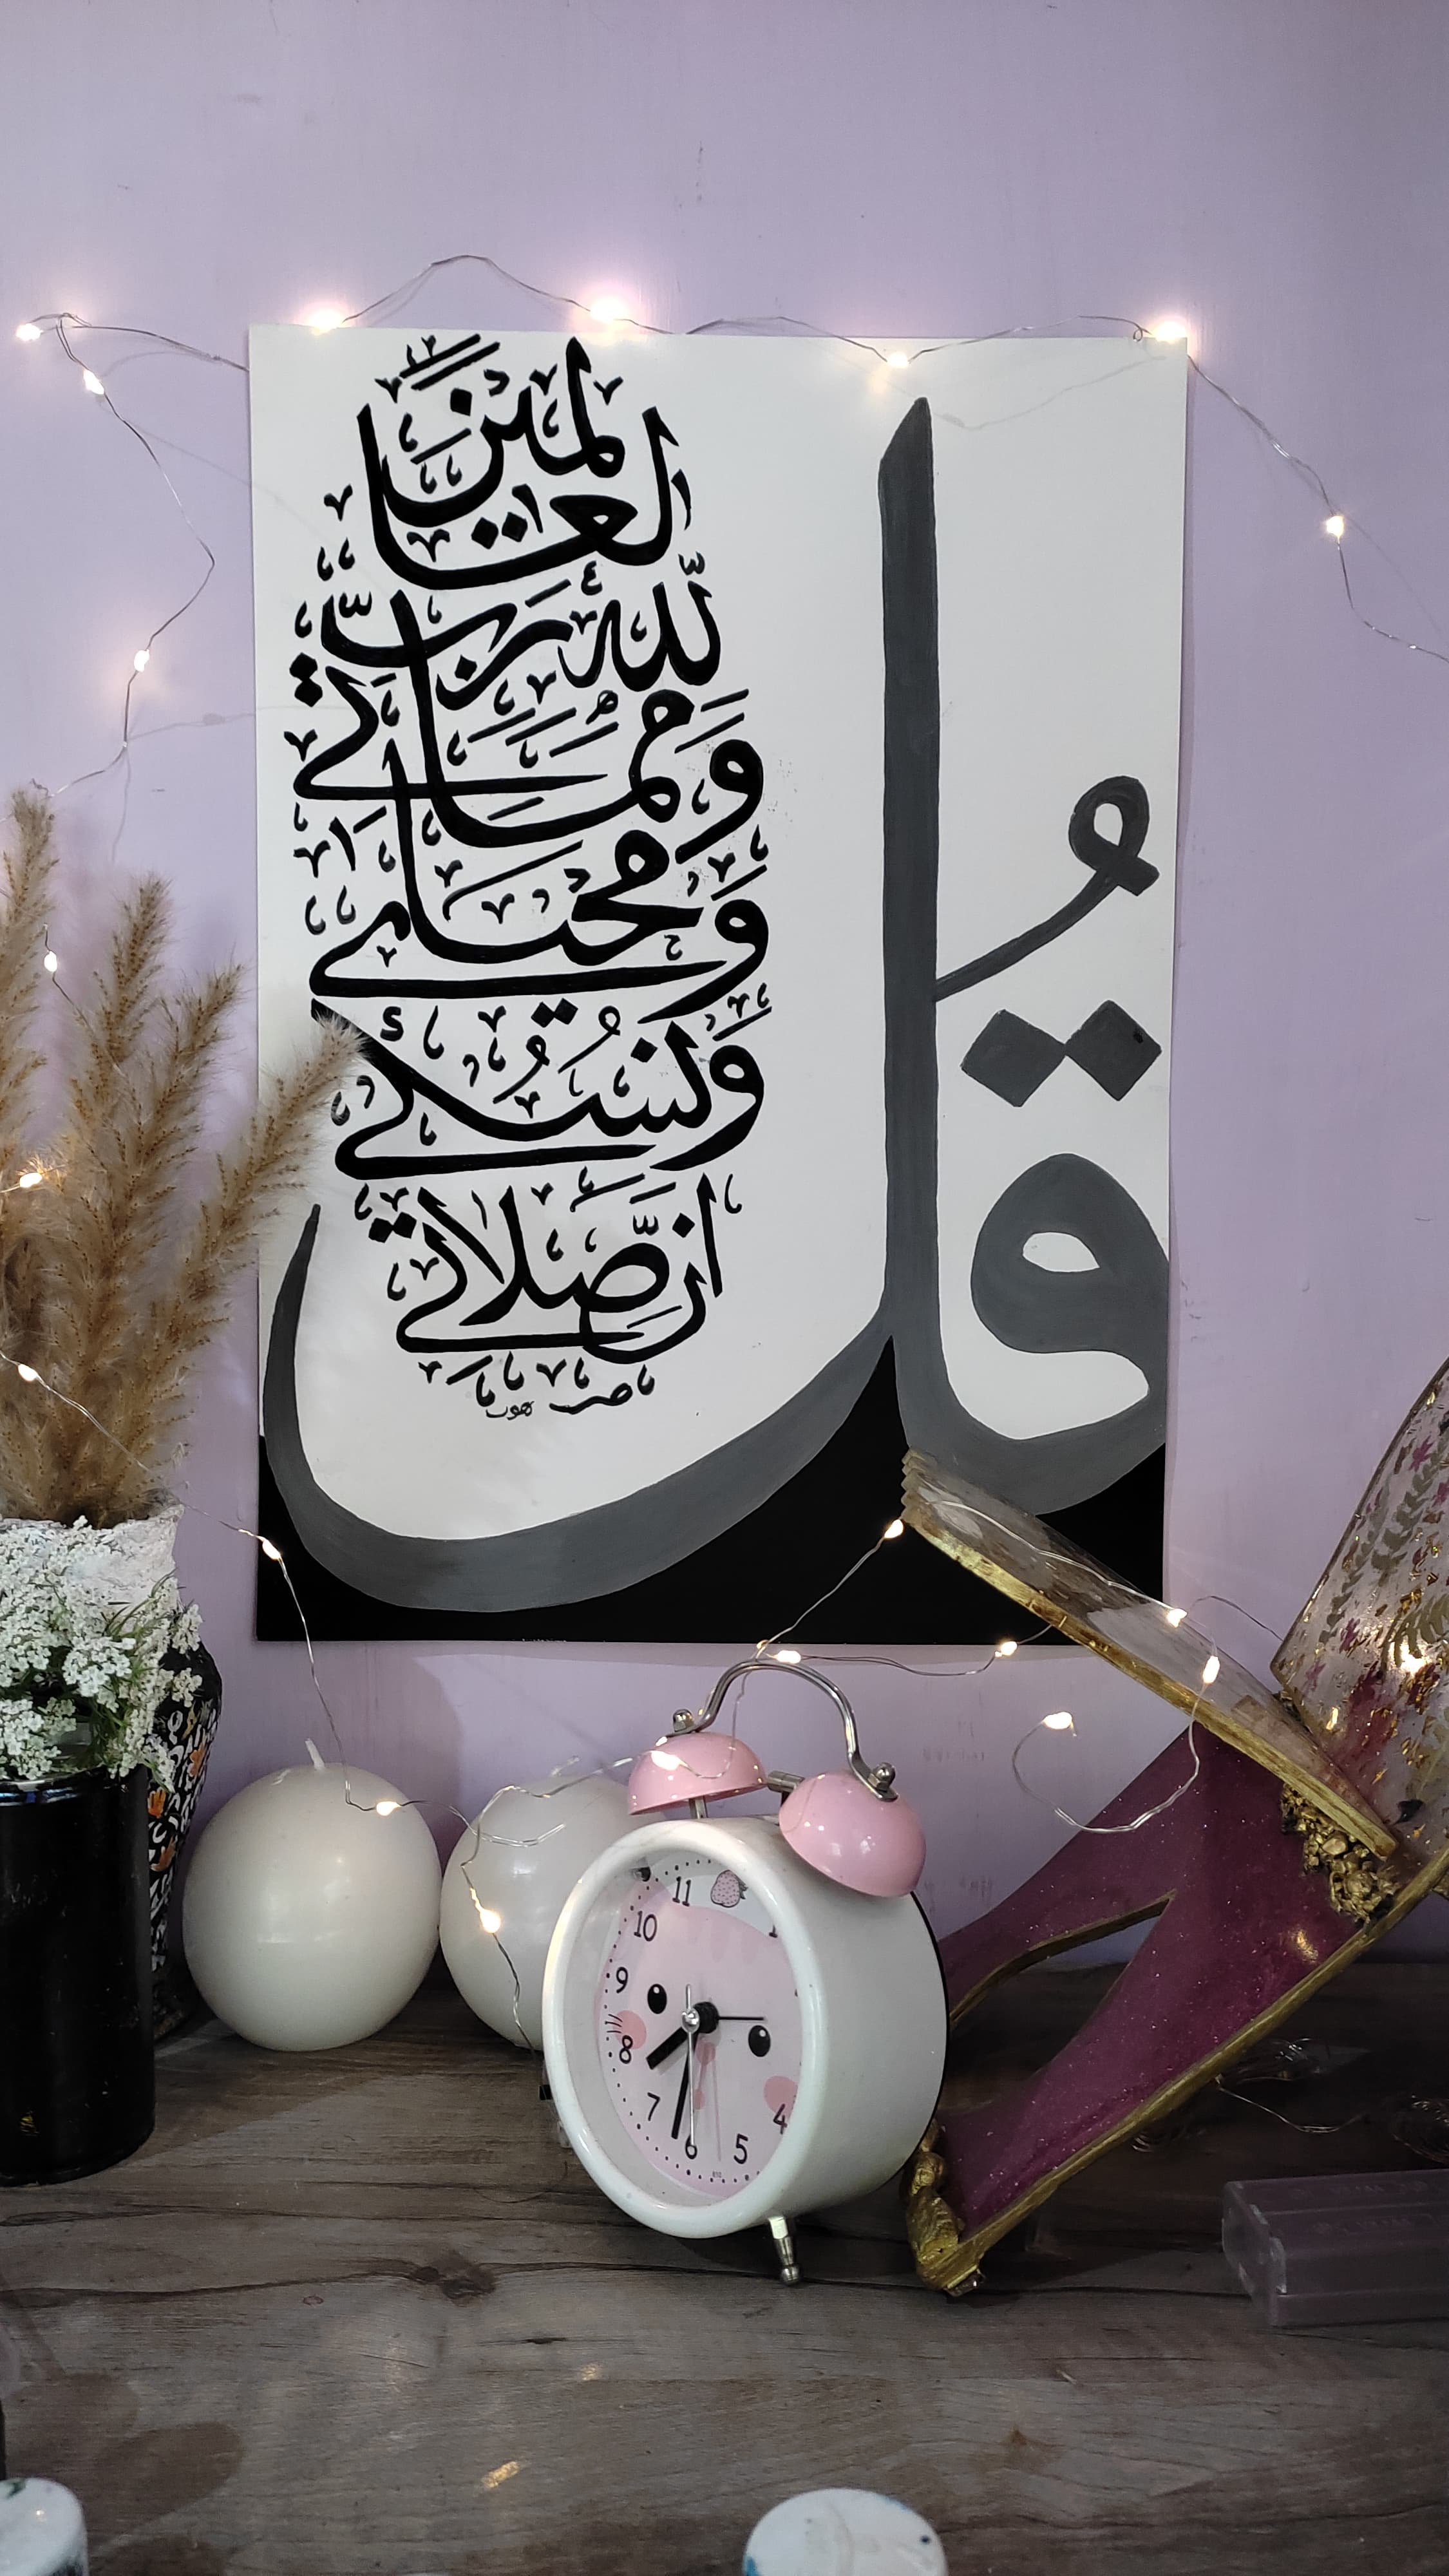 قُل
اِنَّ صَلَاتِي
وَنُسُكِي
وَمَحْيَايَ
وَمَمَاتِي
لِلّٰهِ رَبِّ
الْعَالَمِينَ
11
10
9
8
7
6
5
4